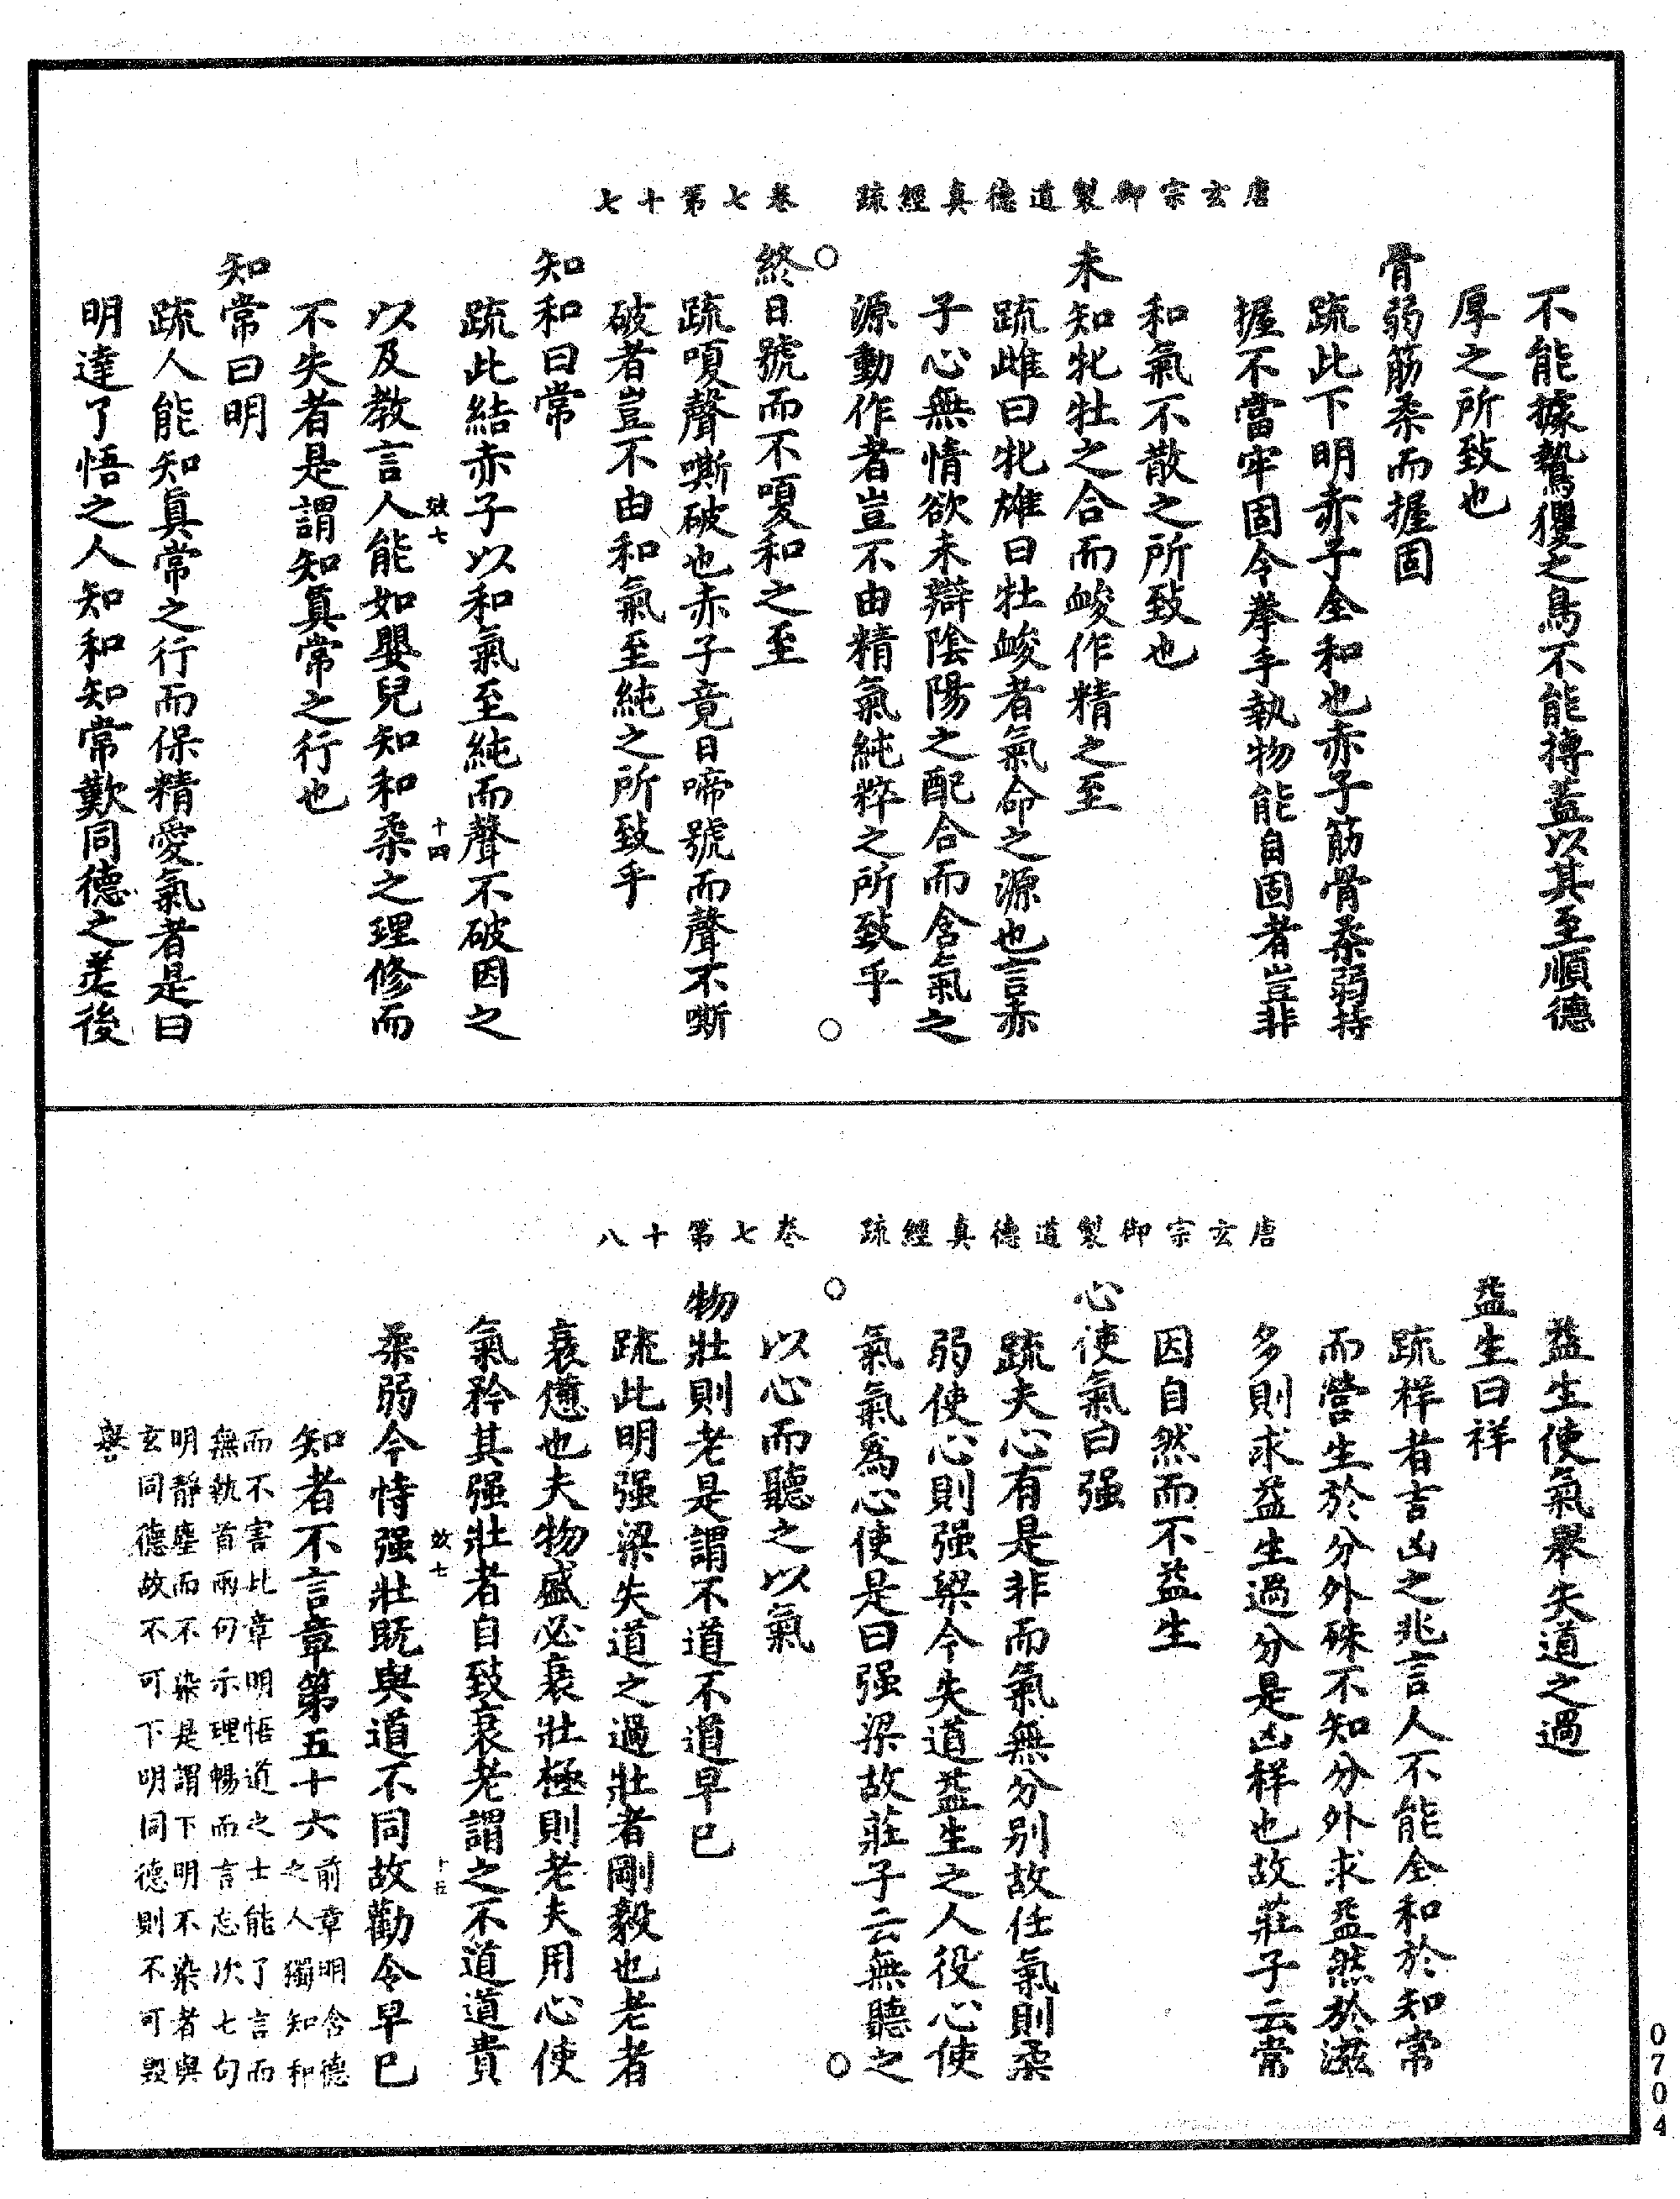 唐玄宗御製道德真經疏　卷七第十七
不能據鷙玃之鳥不能搏蓋以其至順德
厚之所致也
骨弱筋柔而握固
疏此下明赤子全和也赤子筋骨柔弱持
握不當牢固今拳手執物能自固者豈非
和氣不散之所致也
未知牝牡之合而峻作精之至
疏雌曰牝雄曰牡峻者氣命之源也言赤
子心無情欲未辯陰陽之配合而含氣之
源動作者豈不由精氣純粹之所致乎
終日號而不嗄和之至
疏嗄聲嘶破也赤子竟日啼號而聲不嘶
破者豈不由和氣至純之所致乎
知和曰常
疏此結赤子以和氣至純而聲不破因之
效七　十四
以及教言人能如嬰兒知和柔之理修而
不失者是謂知真常之行也
知常曰明
疏人能知真常之行而保精愛氣者是曰
明達了悟之人知和知常歎同德之美後
唐玄宗御製道德真經疏　卷七第十八
益生使氣舉失道之過
益生曰祥
疏祥者吉凶之兆言人不能全和於知常
而營生於分外殊不知分外求益然於滋
多則求益生過分是凶祥也故莊子云常
因自然而不益生
心使氣曰强
疏夫心有是非而氣無分別故任氣則柔
弱使心則强梁今失道益生之人役心使
氣氣為心使是曰强梁故莊子云無聽之
以心而聽之以氣
物壯則老是謂不道不道早已
疏此明强梁失道之過壯者剛毅也老者
衰憊也夫物盛必衰衰壯極則老夫用心使
氣矜其强壯者自致衰老謂之不道道貴
效七　十五
柔弱今恃强壯既與道不同故勸令早已
知者不言章第五十六
前章明含德
之人獨知和
而不害此章明悟道之士能了言而
無執首兩句示理暢而言忘次七句
明靜塵而不染是謂下明不染者與
玄同德故不可下明同德則不可毀
譽
0704